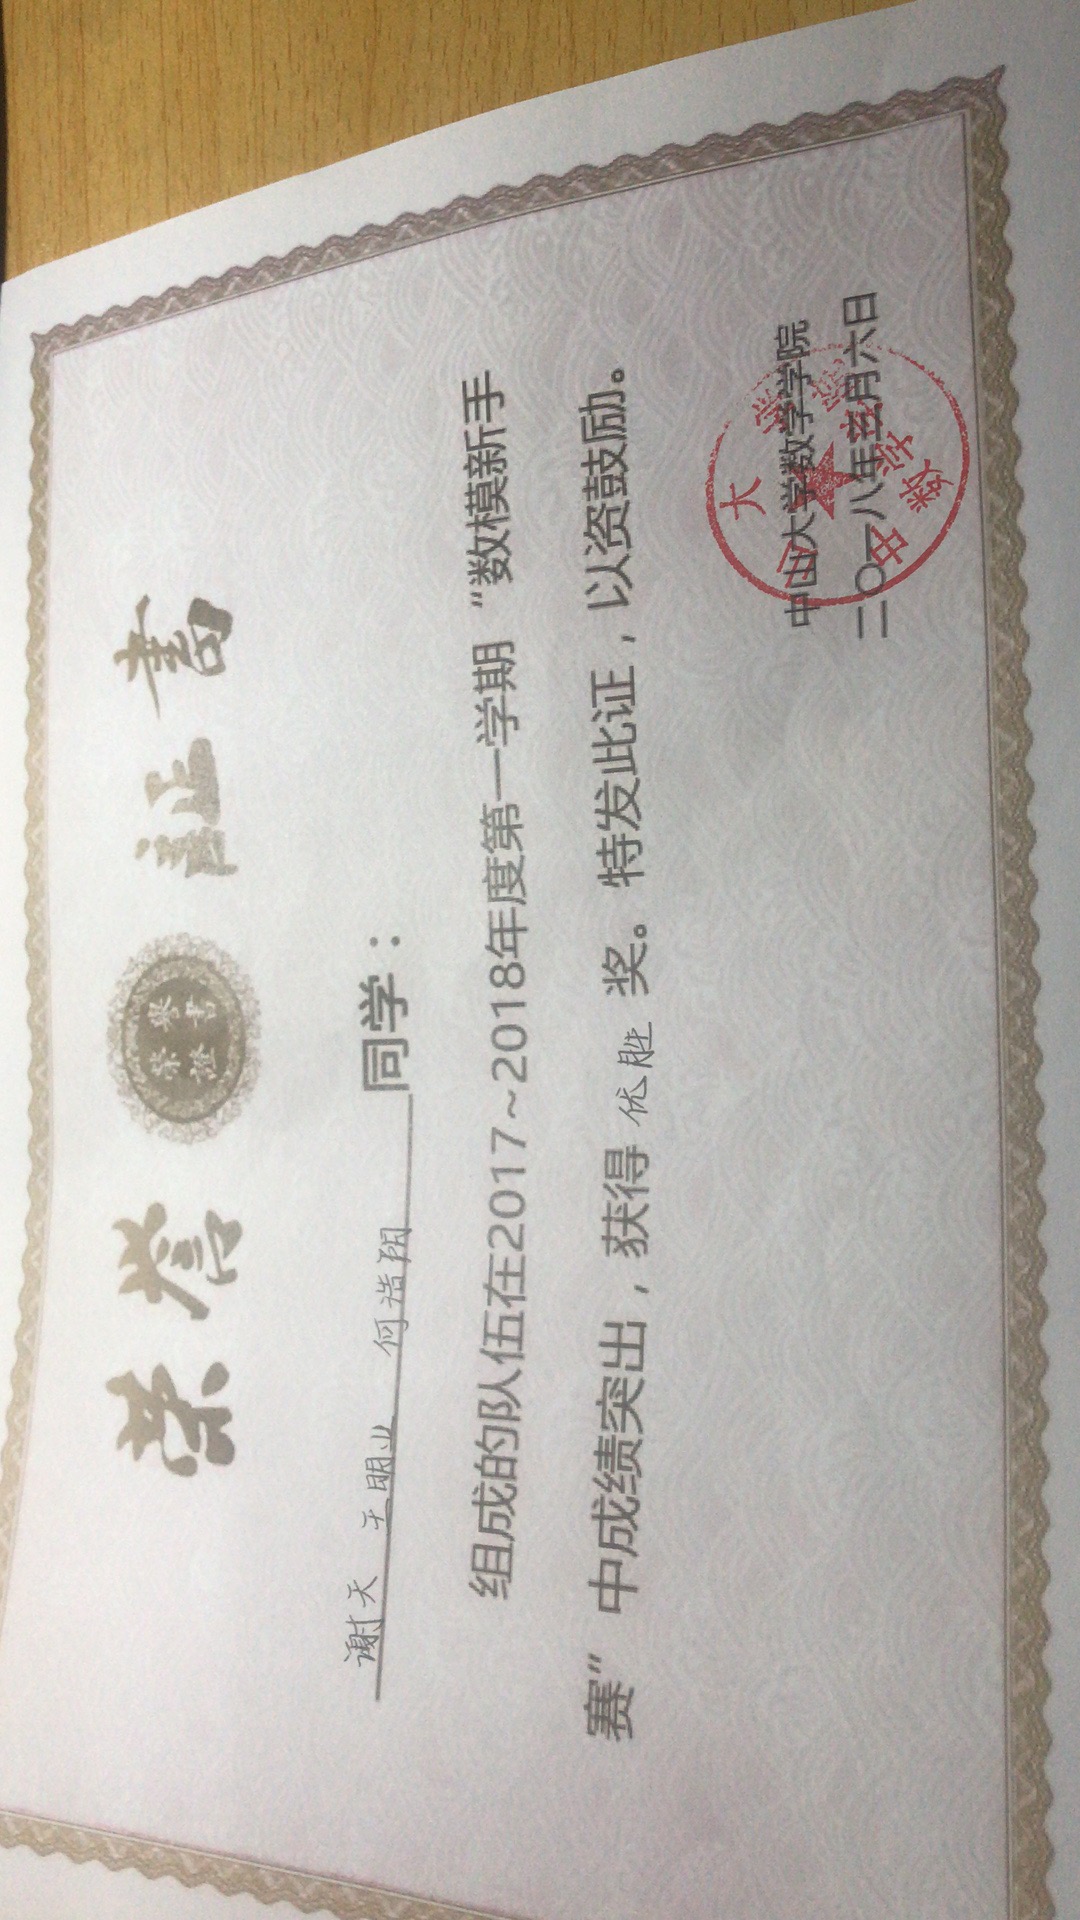 荣誉证書
榮譽
證書
谢天 王明业 何浩阴 同学：
组成的队伍在2017~2018年度第一学期“数模新手
赛”中成绩突出，获得 优胜 奖。特发此证，以资鼓励。
中山大学数学学院
二〇一八年三月六日
中山大学
数学学院